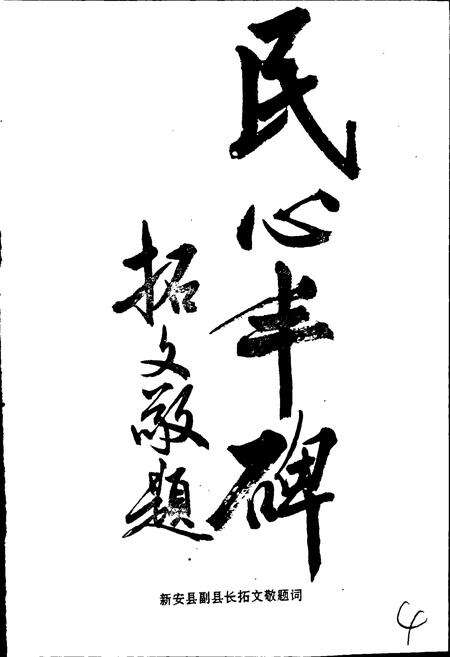 民心丰碑
拓文敬题
新安县副县长拓文敬题词
4